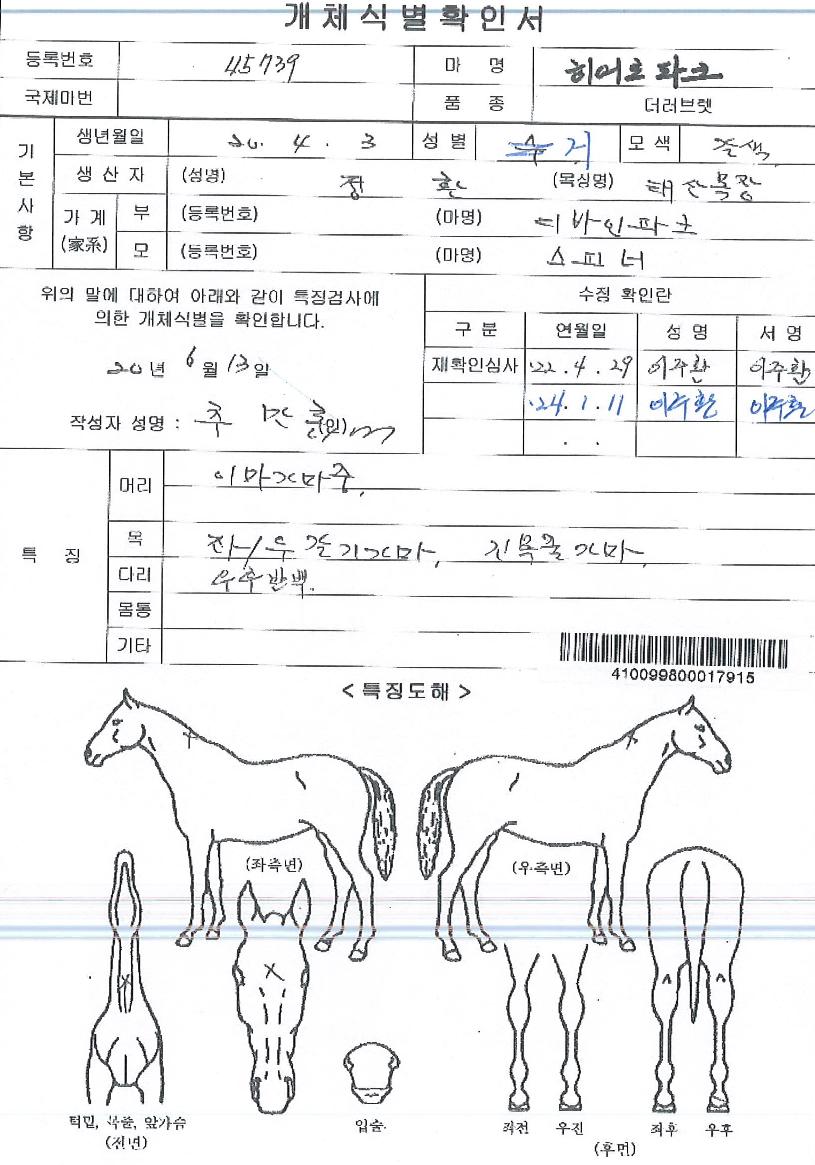 개체식별확인서
등록번호 45739 마 명 히어로파크
국제마번 품 종 더러브렛
기본사항
생년월일 20. 4. 3 성별 수 거 모색 갈색
생산자 (성명) 정 환 (목장명) 태산목장
가계 (家系) 부 (등록번호) (마명) 디바인파크
모 (등록번호) (마명) 스피너
위의 말에 대하여 아래와 같이 특징검사에
의한 개체식별을 확인합니다.
20년 6월 13일
작성자 성명 : 추 만 (인)
수정 확인란
구분 연월일 성명 서명
재확인심사 '22. 4. 29 이주환 이주환
'24. 1. 11 이주환 이주환
. .
특 징
머리 이마가마중.
목 좌/우 갈기가마, 긴목줄가마.
다리 우후반백.
몸통
기타
410099800017915
< 특징도해 >
(좌측면) (우측면)
턱밑, 목줄, 앞가슴
(전면)
입술
좌전 우전 좌후 우후
(후면)